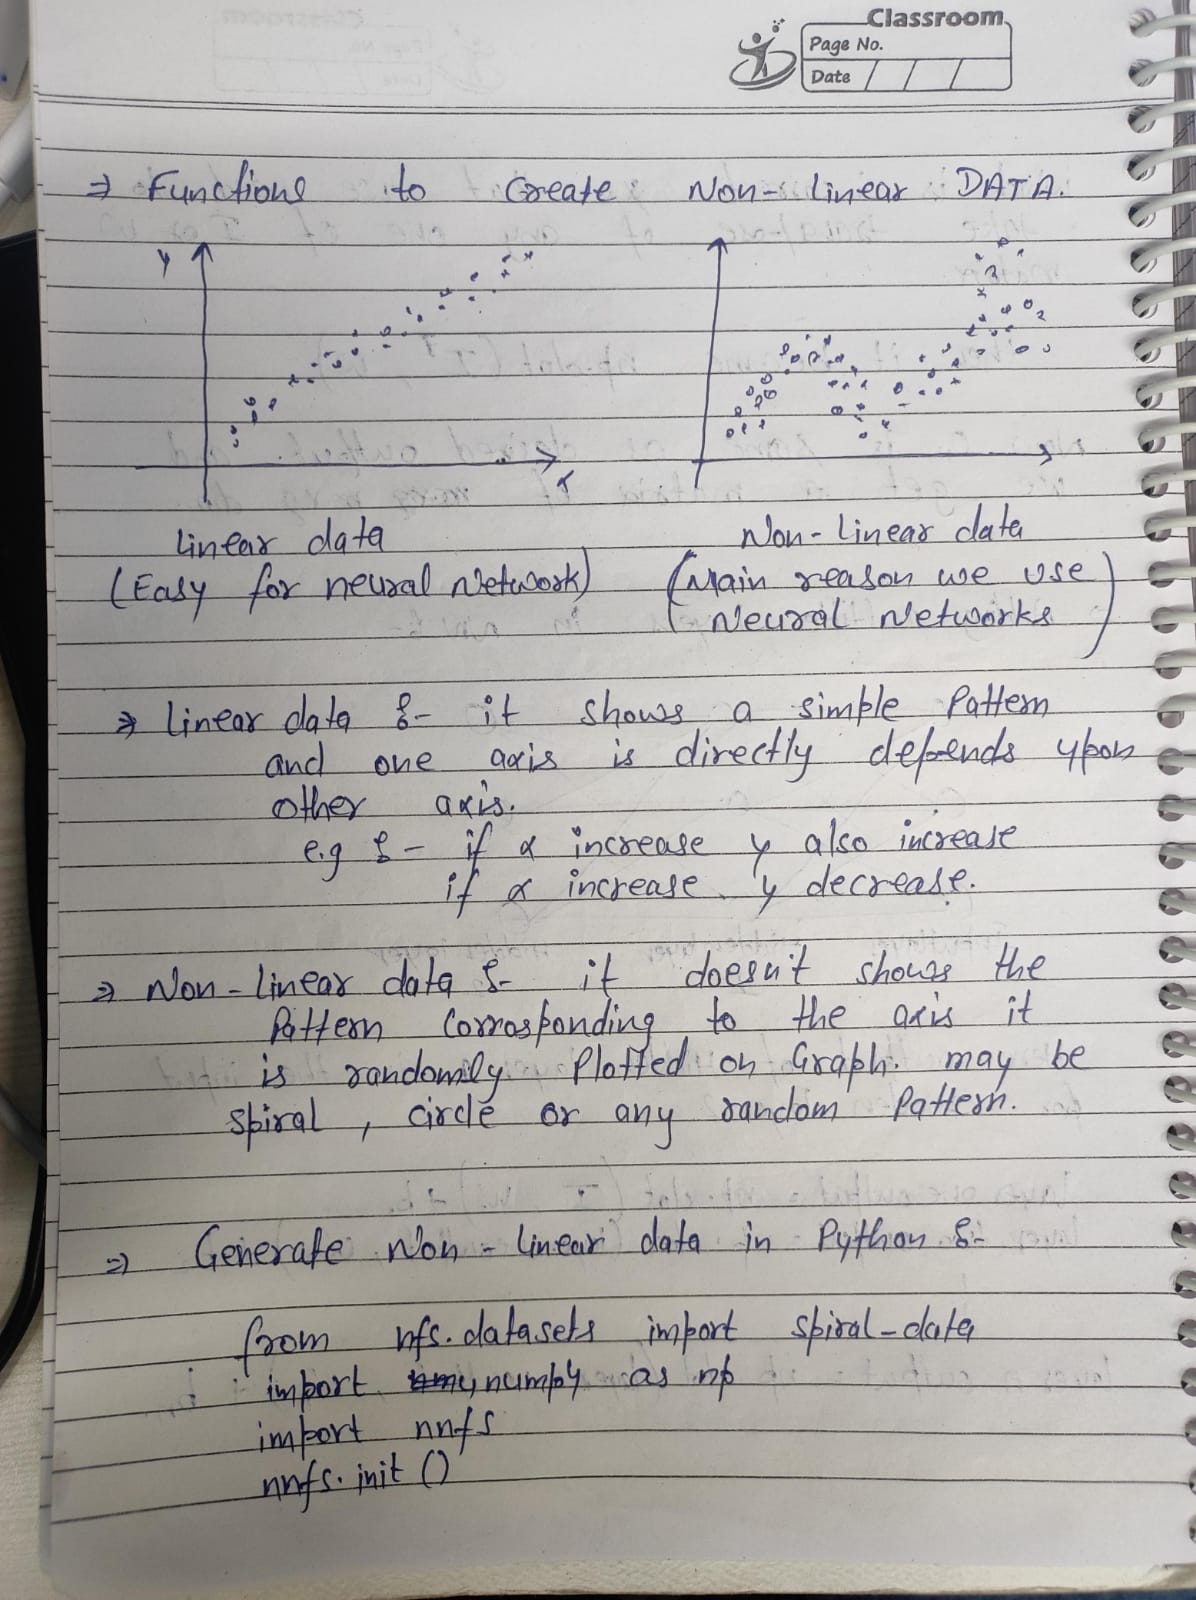 Classroom
Page No.
Date
⇒ Functions to Create Non-linear DATA.
y
x
Linear data
(Easy for neural Network)
Non-Linear data
(Main reason we use
Neural Networks)
⇒ Linear data :- it shows a simple Pattern
and one axis is directly depends upon
other axis.
e.g :- if x increase y also increase
if x increase y decrease.
⇒ Non-linear data :- it doesn't shows the
Pattern Corrosponding to the axis it
is randomily Plotted on Graph. may be
spiral, circle or any random Pattern.
⇒ Generate Non-linear data in Python :-
from nfs.datasets import spiral-data
import numpy as np
import nnfs
nnfs.init()